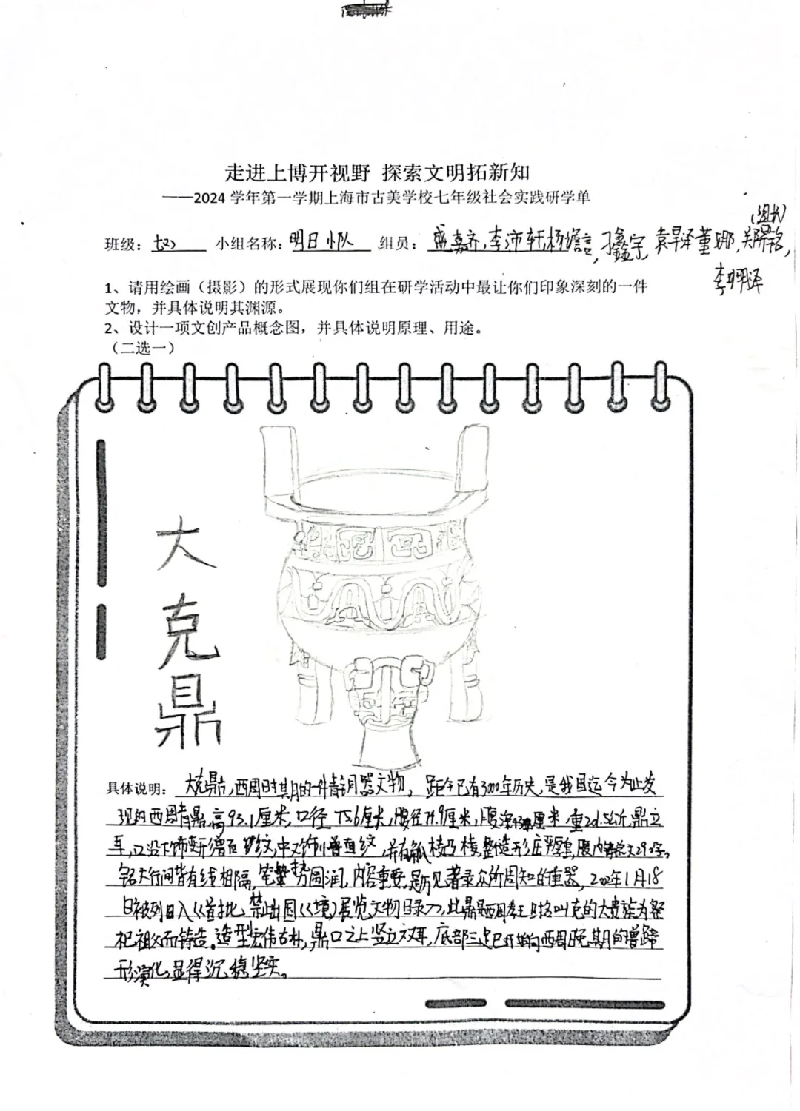 走进上博开视野 探索文明拓新知
——2024 学年第一学期上海市古美学校七年级社会实践研学单
(组长)
班级： 小组名称：明日小队 组员：盛嘉齐，李沛轩,杨 ，刁鑫宇 袁 董娜,
李 泽
1、请用绘画（摄影）的形式展现你们组在研学活动中最让你们印象深刻的一件
文物，并具体说明其渊源。
2、设计一项文创产品概念图，并具体说明原理、用途。
（二选一）
大克鼎
具体说明： 大克鼎，西周时期的一件青铜器文物， 距今已有 年历史，是我国迄今为止发
现的西周 鼎，高93.1厘米，口径75.6厘米，腹径74.9厘米，腹深 厘米，重201.5公斤，鼎立
耳， 纹，中 纹， 有 棱 棱，整 造形庄严厚重，腹内 文290字，
铭文行间皆有线相隔，笔 势圆润，内容 ，是 见著录众所周知的重器，2002年1月18
日被列 入《首批禁止出国(境)展览文物目录》，此鼎是西周孝王时名叫克的大贵族为祭
祀祖父而铸造。造型宏伟古朴，鼎口之上竖立双耳，底部三足已开始向西周晚期的兽蹄
形演化，显得沉稳坚实。